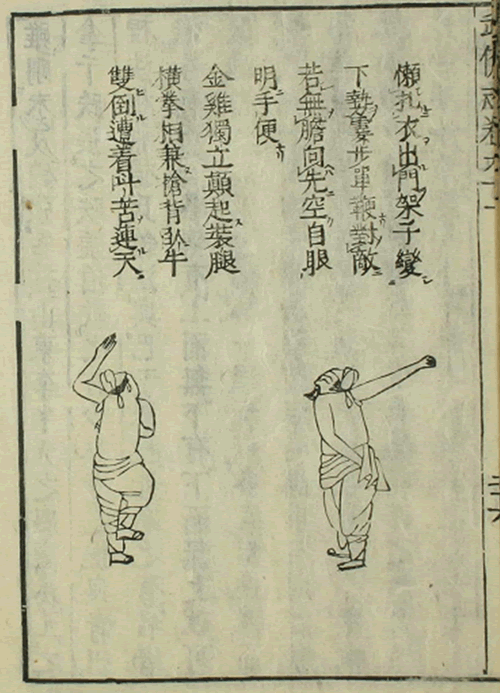 武備志卷九十
懶扎衣出門架子變
下勢霎步單鞭對敵
若無膽向先空自眼
明手便
金雞獨立顛起裝腿
橫拳相兼搶背臥牛
雙倒遭着叫苦連天